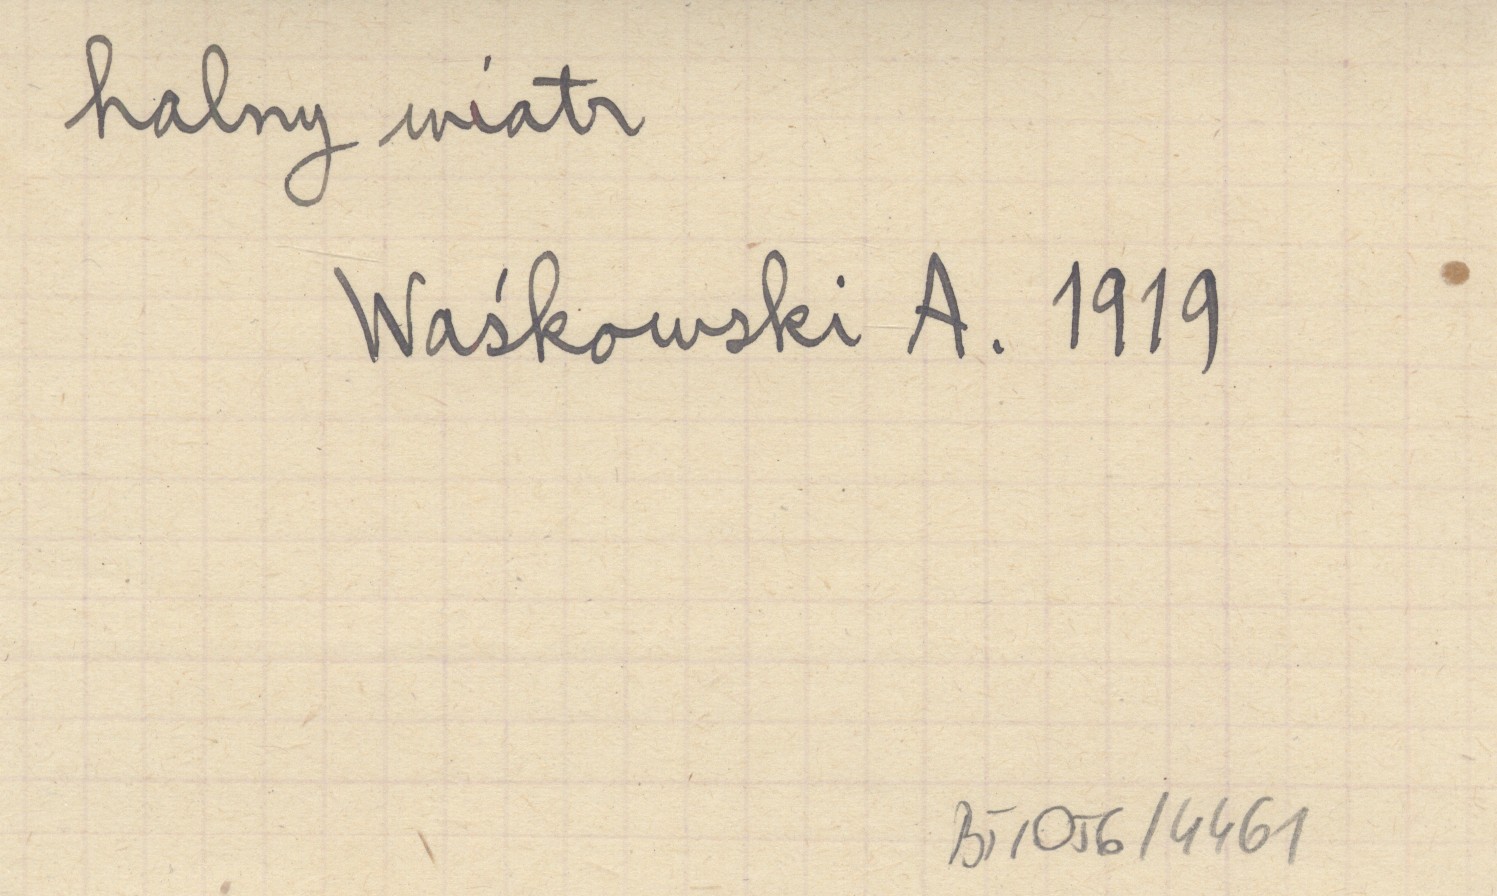 halny wiatr
Waśkowski A. 1919
BI/OJG/4461